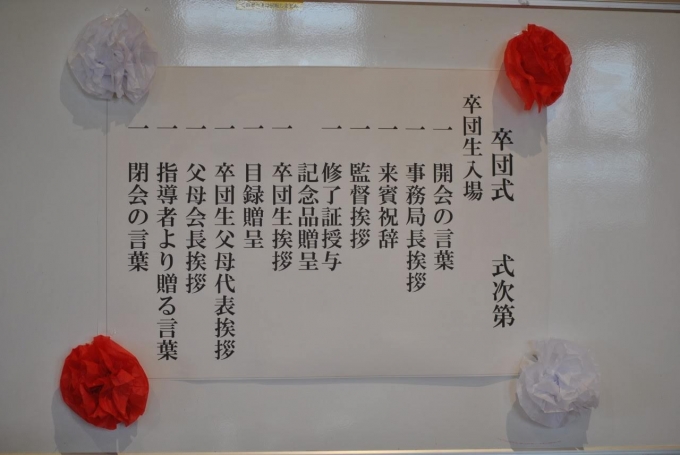 卒団式　式次第
卒団生入場
一　開会の言葉
一　事務局長挨拶
一　来賓祝辞
一　監督挨拶
一　修了証授与
記念品贈呈
一　卒団生挨拶
一　目録贈呈
一　卒団生父母代表挨拶
一　父母会長挨拶
一　指導者より贈る言葉
一　閉会の言葉